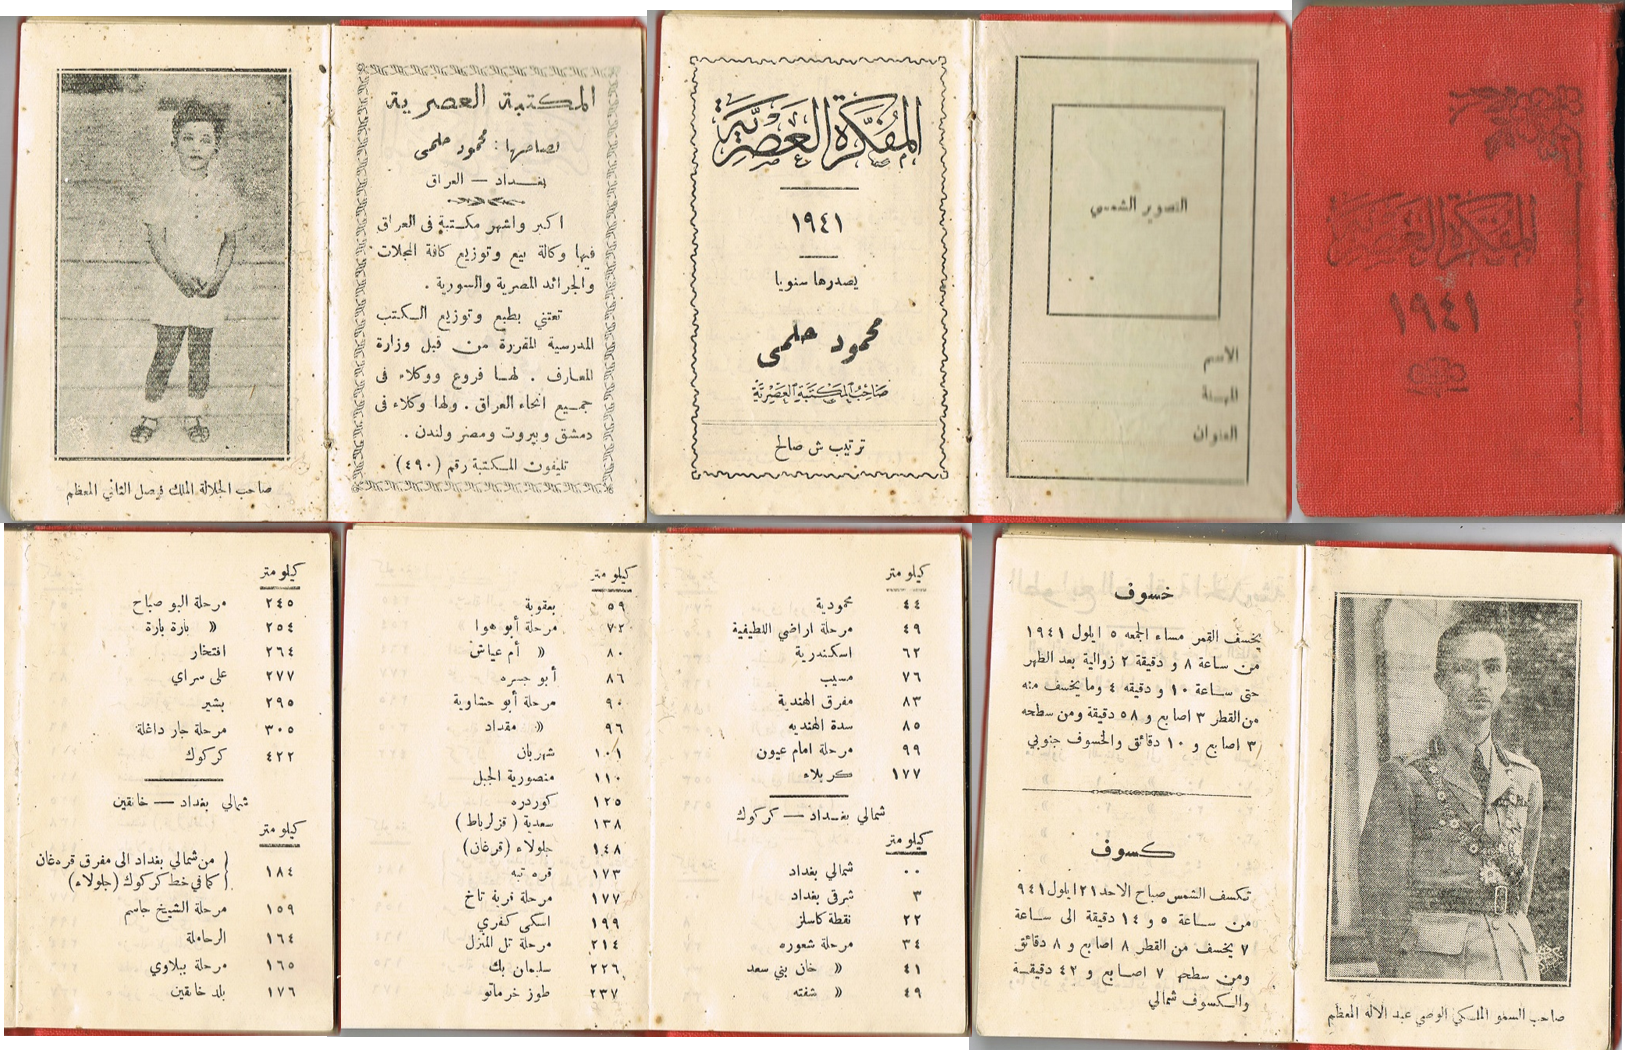 المفكرة العصرية
١٩٤١
التصوير الشمسي
الاسم
المهنة
العنوان
المُفَكِّرَة العَصْرِيَّة
١٩٤١
يصدرها سنويا
محمود حلمي
صَاحِبُ المَكتَبَة العَصْرِيَّة
ترتيب ش صالح
المكتبة العصرية
لصاحبها : محمود حلمي
بغداد — العراق
اكبر واشهر مكتبة في العراق
فيها وكالة بيع وتوزيع كافة المجلات
والجرائد المصرية والسورية .
تعتني بطبع وتوزيع الكتب
المدرسية المقررة من قبل وزارة
المعارف . لها فروع ووكلاء في
جميع انحاء العراق . ولها وكلاء في
دمشق وبيروت ومصر ولندن .
تليفون المكتبة رقم (٤٩٠)
صاحب الجلالة الملك فيصل الثاني المعظم
صاحب السمو الملكي الوصي عبد الاله المعظم
خسوف
يخسف القمر مساء الجمعه ٥ ايلول ١٩٤١
من ساعة ٨ و دقيقة ٢ زوالية بعد الظهر
حتى ساعة ١٠ و دقيقه ٤ وما يخسف منه
من القطر ٣ اصابع و ٥٨ دقيقة ومن سطحه
٣ اصابع و ١٠ دقائق والخسوف جنوبي
كسوف
تكسف الشمس صباح الاحد ٢١ ايلول ٩٤١
من ساعة ٥ و ١٤ دقيقة الى ساعة
٧ يخسف من القطر ٨ اصابع و ٨ دقائق
ومن سطحه ٧ اصابع و ٤٢ دقيقة
والكسوف شمالي
كيلو متر
٤٤ محمودية
٤٩ مرحلة اراضي اللطيفية
٦٢ اسكندرية
٧٦ مسيب
٨٣ مفرق الهندية
٨٥ سدة الهنديه
٩٩ مرحلة امام عيون
١٧٧ كربلاء
شمالي بغداد — كركوك
كيلو متر
٠٠ شمالي بغداد
٣ شرقي بغداد
٢٢ نقطة كاسلز
٣٤ مرحلة شعوره
٤١ » خان بني سعد
٤٩ » شفته
كيلو متر
٥٩ بعقوبة
٧٢ مرحلة أبو هوا
٨٠ » أم عياش
٨٦ أبو جسره
٩٠ مرحلة أبو حشاوية
٩٦ » مقداد
١٠١ شهربان
١١٠ منصورية الجبل
١٢٥ كوردره
١٣٨ سعدية ( قزلرباط )
١٤٨ جلولاء (قرغان)
١٧٣ قره تبه
١٧٧ مرحلة قربة تاخ
١٩٩ اسكى كفري
٢١٤ مرحلة تل المنزل
٢٢٦ سليمان بك
٢٣٧ طوز خرماتو
كيلو متر
٢٤٥ مرحلة البو صباح
٢٥٤ » بارة بارة
٢٦٤ افتخار
٢٧٧ على سراي
٢٩٥ بشير
٣٠٥ مرحلة جار داغلة
٤٢٢ كركوك
شمالي بغداد — خانقين
كيلو متر
١٨٤ من شمالي بغداد الى مفرق قره غان
كما في خط كركوك (جلولاء)
١٥٩ مرحلة الشيخ جاسم
١٦٤ الرحاملة
١٦٥ مرحلة ببلاوي
١٧٦ بلد خانقين